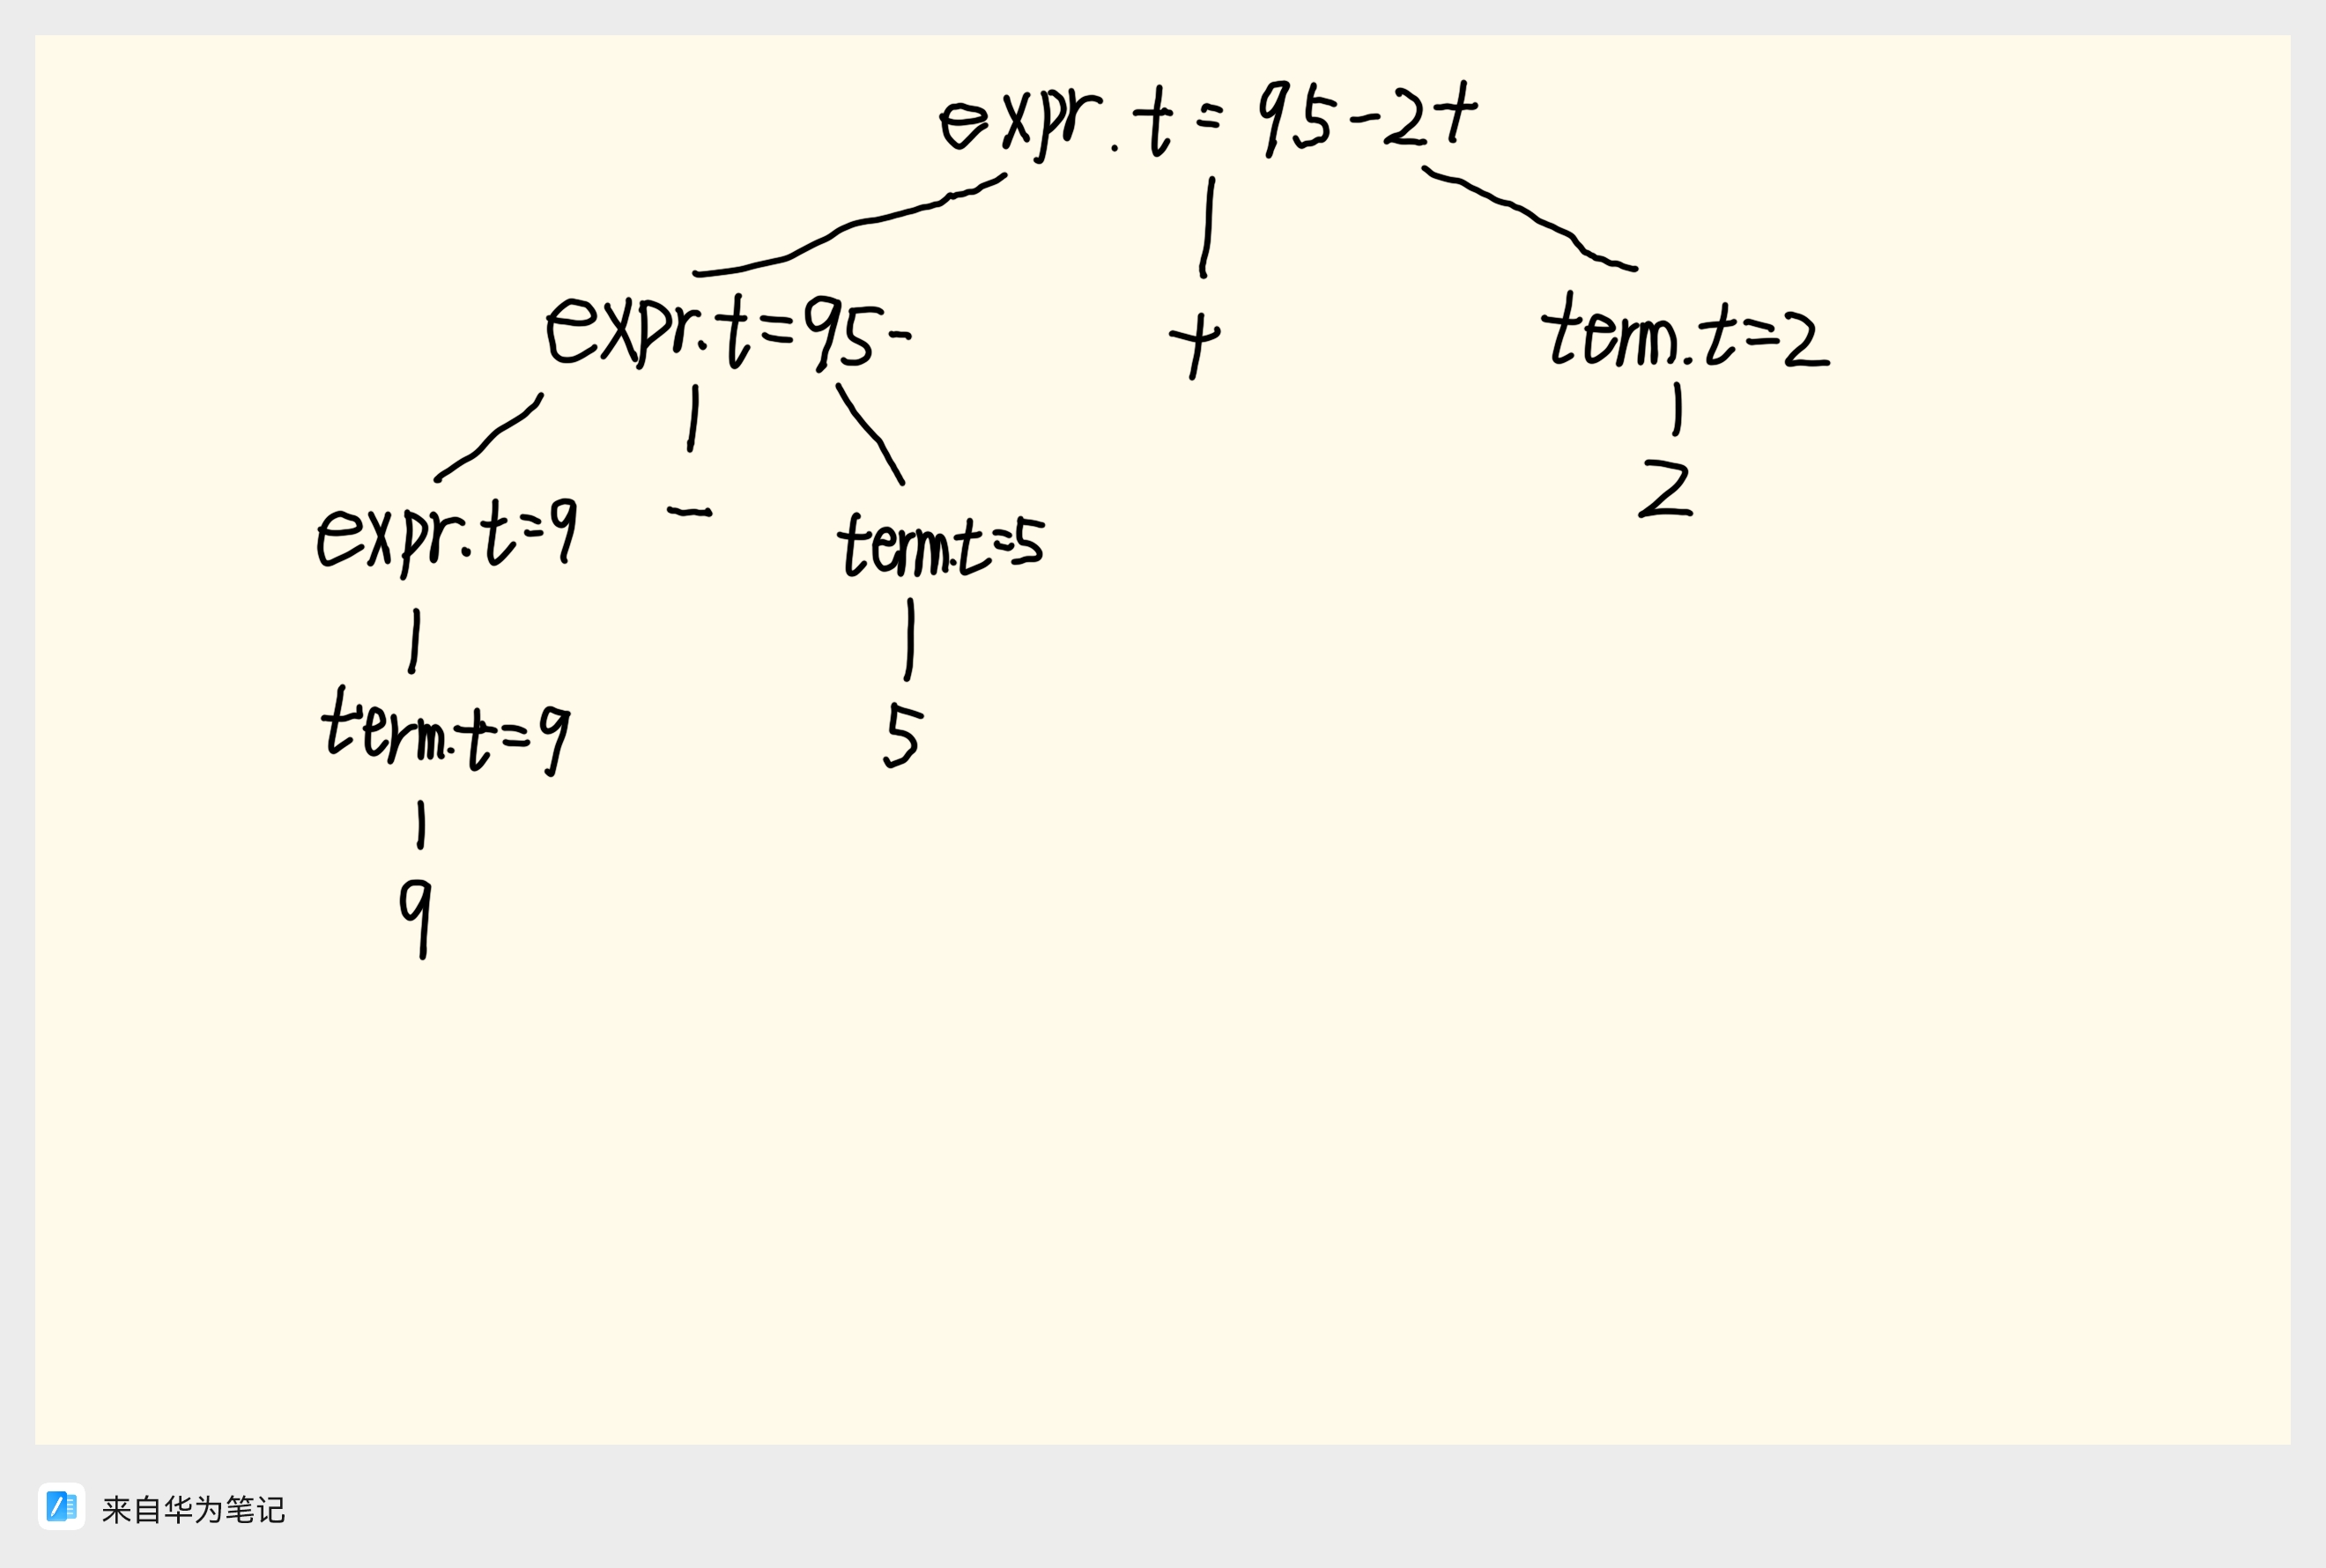 expr.t=95-2+
expr.t=95- + term.t=2
2
expr.t=9 - term.t=5
term.t=9 5
9
来自华为笔记